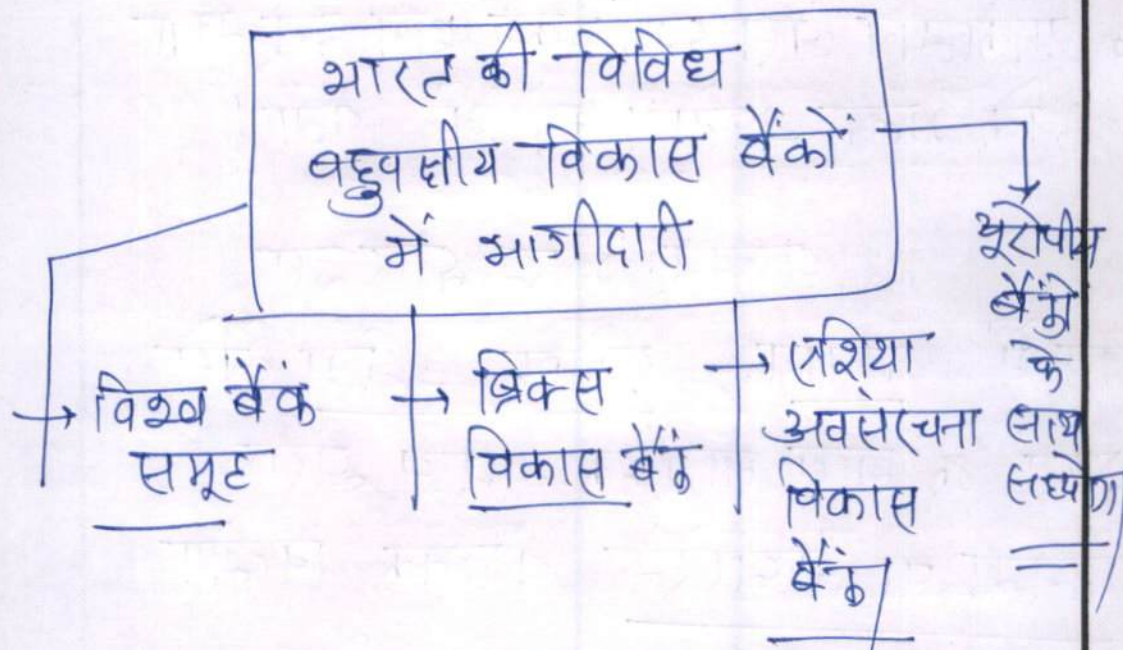 भारत की विविध
बहुपक्षीय विकास बैंकों
में भागीदारी
विश्व बैंक
समूह
ब्रिक्स
विकास बैंक
एशिया
अवसंरचना
विकास
बैंक
यूरोपीय
बैंकों
के
साथ
सहयोग